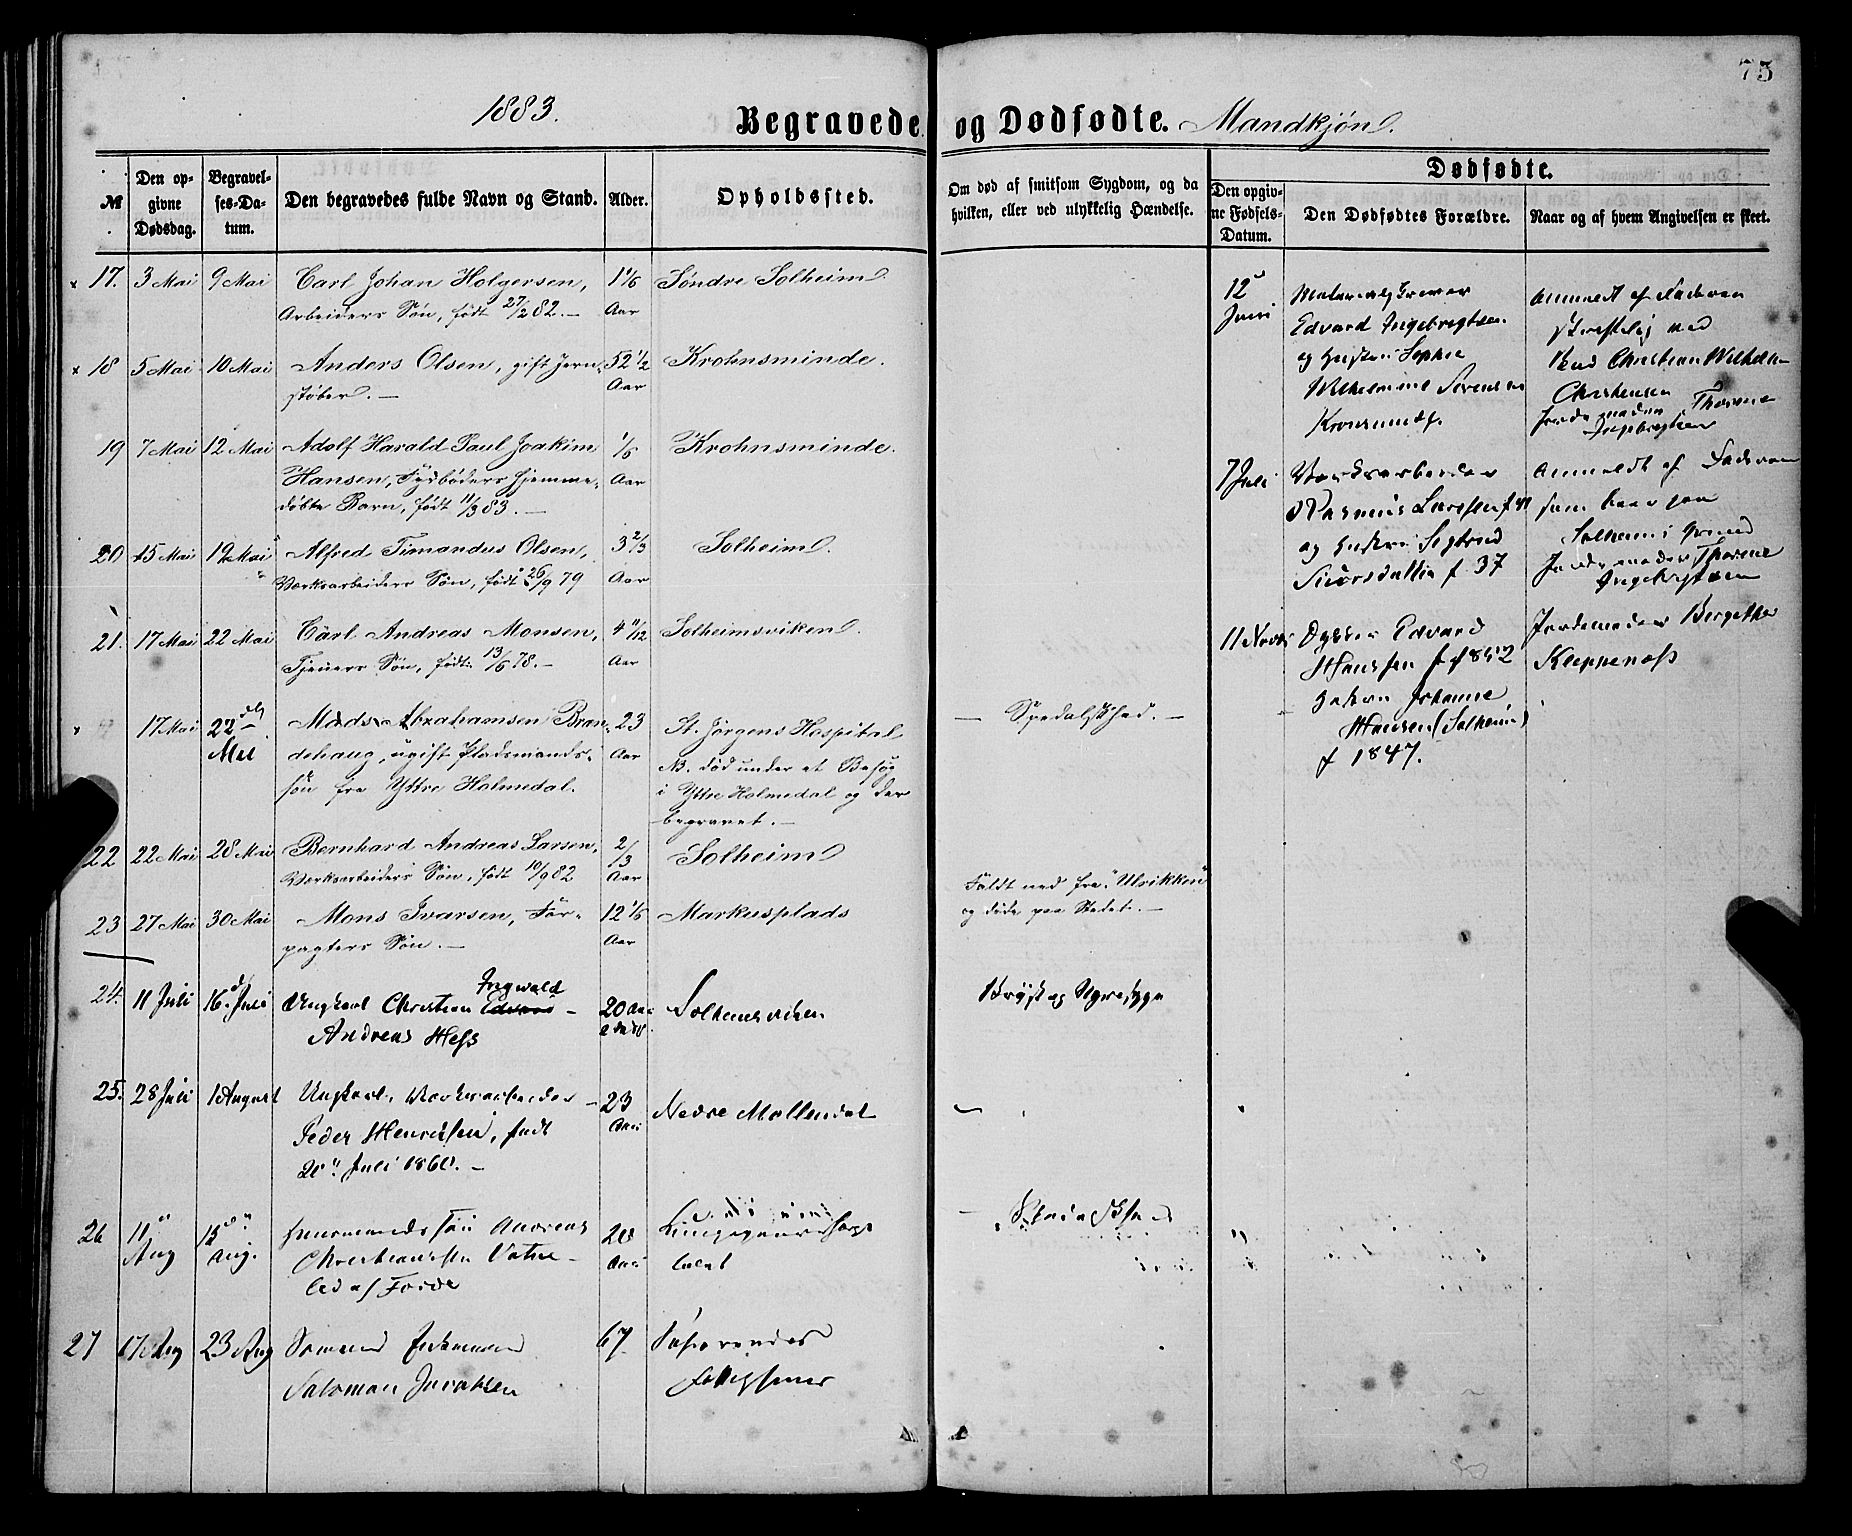 75
1883.
Begravede og Dødfødte. Mandkjøn.
№
Den opgivne Dødsdag.
Begravelses-Datum.
Den begravedes fulde Navn og Stand.
Alder.
Opholdssted.
Om død af smitsom Sygdom, og da hvilken, eller ved ulykkelig Hændelse.
Dødfødte.
Den opgivne Fødsels-Datum.
Den Dødfødtes Forældre.
Naar og af hvem Angivelsen er skeet.
17. 3 Mai 9 Mai Carl Johan Holgersen, 1 1/6 Søndre Solheim
Arbeiders Søn, født 27/2 82. — Aar
18 5 Mai 10 Mai Anders Olsen, gift Jern- 52 1/2 Krohnsminde.
støber. — Aar
19 7 Mai 12 Mai Adolf Harald Paul Joakim 1/6 Krohnsminde.
Hansen, Tydbøders hjemme- Aar
døbte Barn, født 11/3 83. —
20 15 Mai 19 Mai Alfred Timandus Olsen, 3 2/3 Solheim.
Værksarbeiders Søn, født 26/9 79 Aar
21. 17 Mai 22 Mai Carl Andreas Monsen, 4 11/12 Solheimsviken.
Tjeners Søn, født 13/6 78. — Aar
17 Mai 22 Mai Mads Abrahamsen Bran- 23 St. Jørgens Hospital — Spedalskhed. —
dehaug, ugift Pladsmands- Aar NB. død under et Besøg
søn fra Yttre Holmedal. i Yttre Holmedal og der
begravet. —
22 22 Mai 28 Mai Bernhard Andreas Larsen, 2/3 Solheim
Værksarbeiders Søn, født 10/9 82 Aar
23 27 Mai 30 Mai Mons Ivarsen, For- 12 1/6 Markusplads Faldt ned fra "Ulrikken"
pagters Søn. — Aar og døde paa Stedet. —
24. 11 Juli 16 Juli Ungkarl Christian Ingvald 20 Aar Solheimsviken Bryst og Nyresyge
Andreas Hess
25. 28 Juli 1 August Ungkarl, Værksarbeider 23 Nedre Møllendal
Peder Henriksen, født Aar
20 Juli 1860. —
26 11 Aug 15 Aug. Husmands Søn Andreas 28 Lungegaards Hospi
Christiansen Aar talet
af Førde
27 17 Aug 23 Aug 67
Salomon Jacobsen
12 Juni
Edvard Ingebregtsen
og Hustru Sophie
Wilhelmine Sørensen
Kronsminde.
Anmeldt af Faderen
skriftelig ved
Christian Wilhelm
Christensen
Jordemoder Thorine
Ingebregtsen
7 Juli Værksarbeider
Rasmus Larssen f 41
og Hustru Sigtrud
Siversdatter f 37
Anmeldt af Faderen
som boer paa
Solheims Grund
Jordemoder Thorine
Ingebrigtsen
11 Novbr Edvard
Hanssen f 1852
Hustru Johanne
Hansen (Solheim)
f 1847.
Jordemoder Bergethe
Kleppenæss